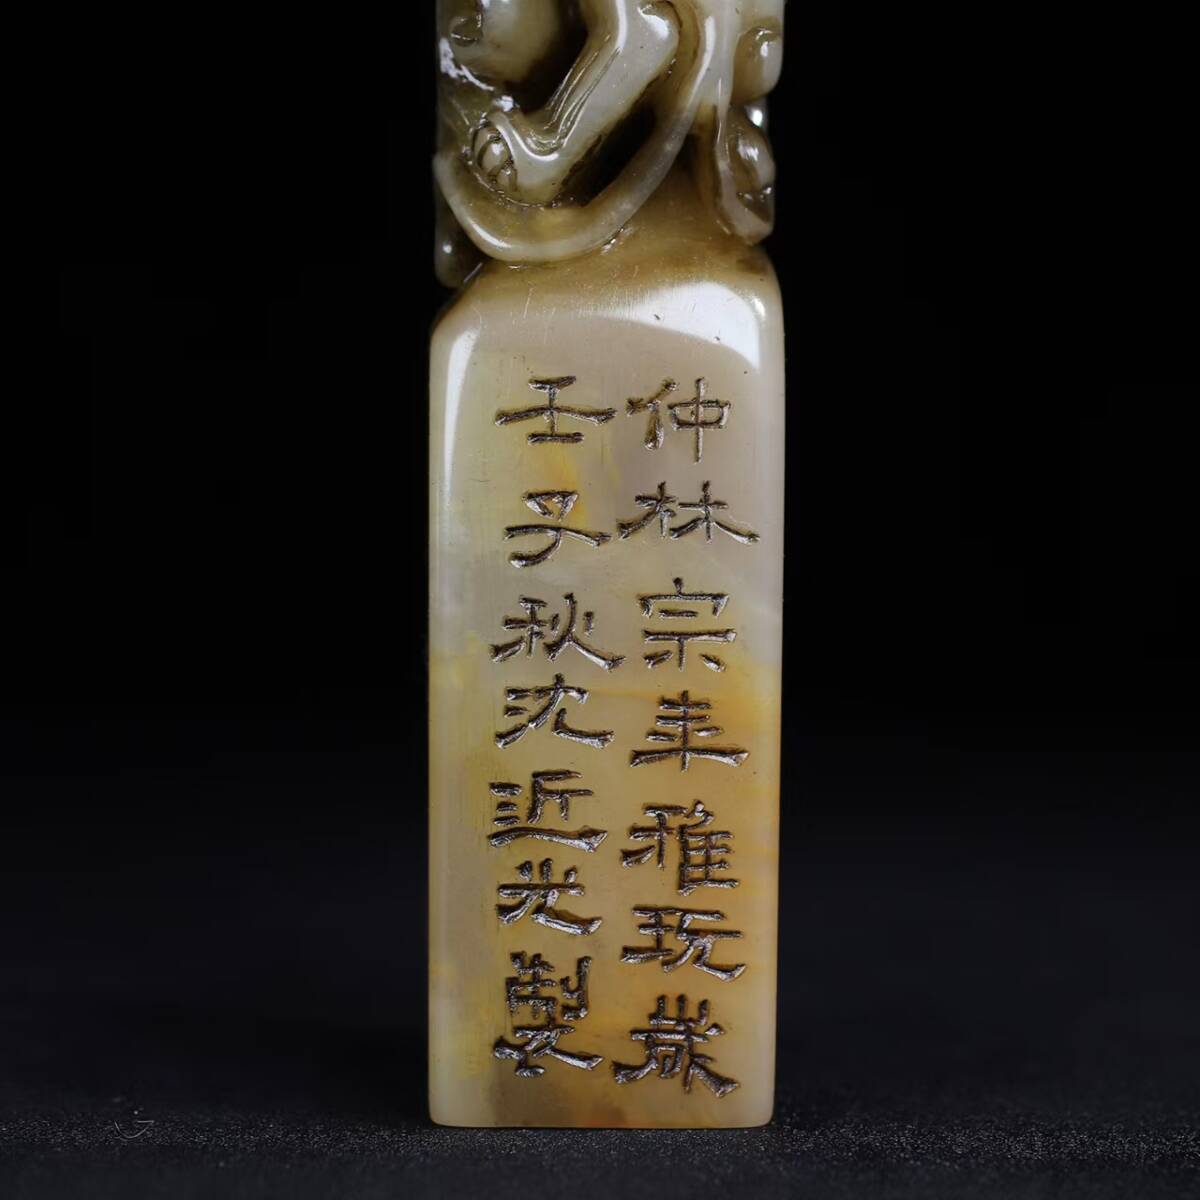 仲林宗丰雅玩歲
壬子秋沈近光製